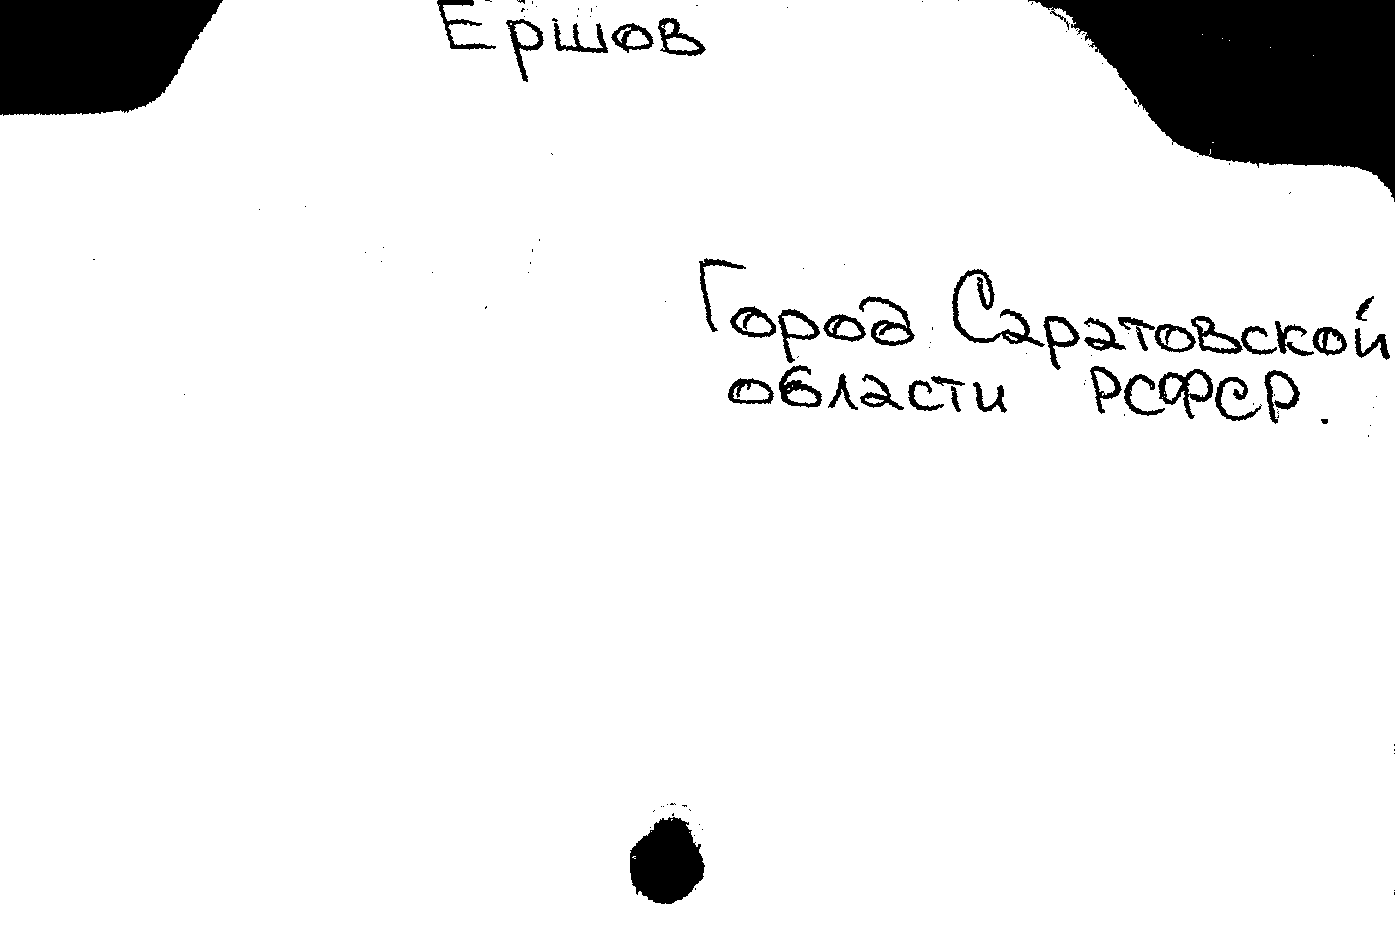 Ершов
Город Саратовской
области РСФСР.